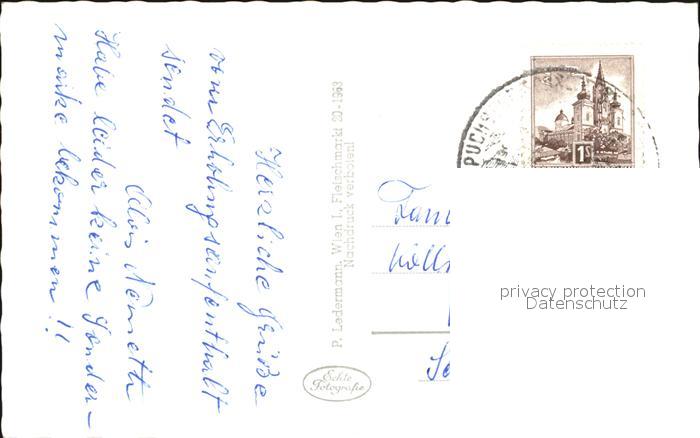 Herzliche Grüße
vom Erholungsaufenthalt
sendet
Alois Németh
Habe leider keine Sonder-
marke bekommen!!
P. Ledermann, Wien I., Fleischmarkt 20 - 1963
Nachdruck verboten!
Echte
Fotografie
PUCH
1S
Fam
privacy protection
Datenschutz